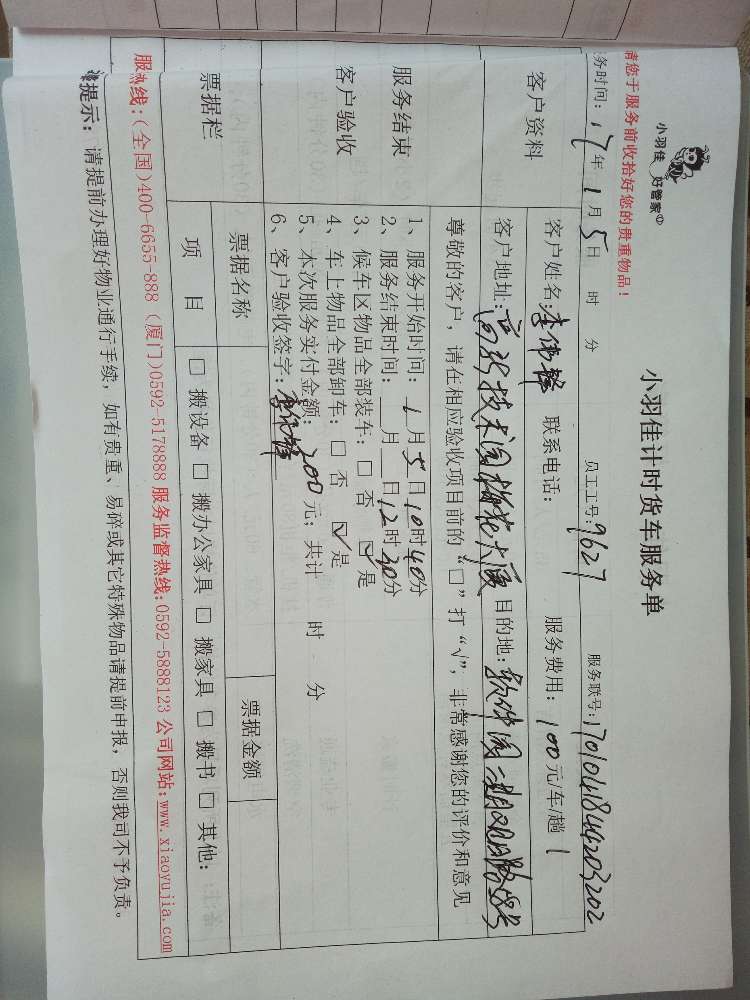 小羽佳 好管家
小羽佳计时货车服务单
请您于服务前收拾好您的贵重物品！
务时间：17年1月5日 时 分 员工工号：9627 服务联号：
客户资料
客户姓名：李伟锋 联系电话： 服务费用：100元/车/趟 1
客户地址：高新技术园 目的地：软件园二期
尊敬的客户，请在相应验收项目前的“□”打“√”，非常感谢您的评价和意见
服务结束
客户验收
1、服务开始时间：1月5日10时40分
2、服务结束时间： 月 日12时30分
3、候车区物品全部装车：□ 否 ☑ 是
4、车上物品全部卸车：□ 否 ☑ 是
5、本次服务实付金额：200元；共计 时 分
6、客户验收签字：李伟锋
票据栏
票据名称 票据金额
项 目 □ 搬设备 □ 搬办公家具 □ 搬家具 □ 搬书 □ 其他：
服务热线：(全国)400-6655-888 (厦门)0592-5178888 服务监督热线：0592-5888123 公司网站：www.xiaoyujia.com
提示： 请提前办理好物业通行手续，如有贵重、易碎或其它特殊物品请提前申报，否则我司不予负责。